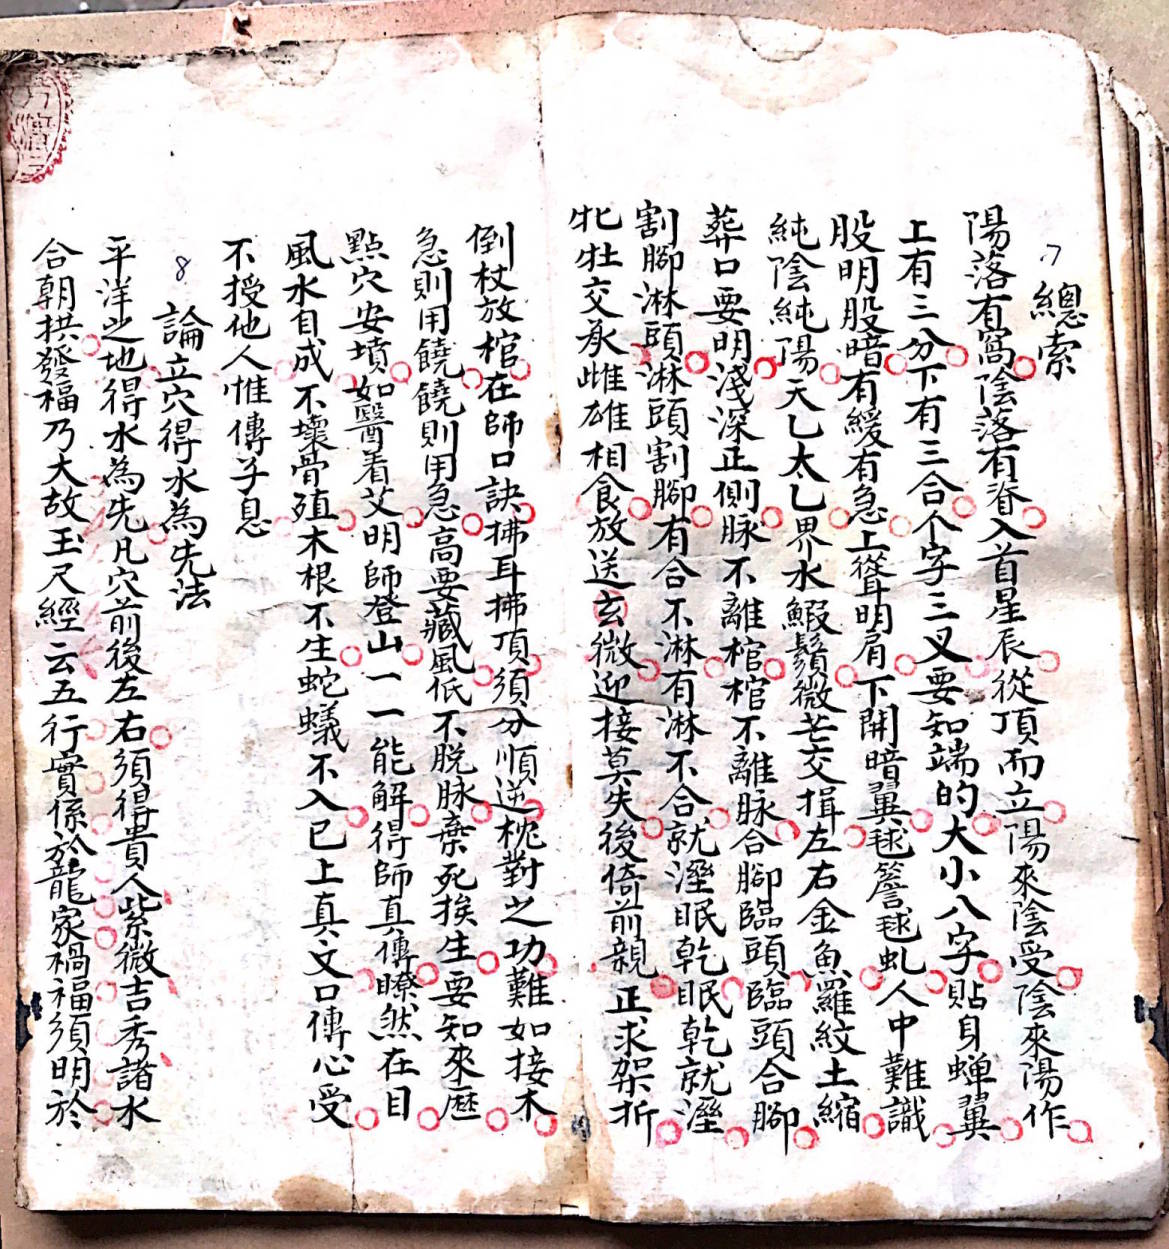 7
總索
陽落有窩陰落有脊入首星辰從頂而立陽來陰受陰來陽作
上有三分下有三合个字三叉要知端的大小八字貼身蝉翼
股明股暗有緩有急上聳明肩下開暗翼毬簷毬虬人中難識
純陰純陽天乙太乙界水鰕鬚微芒交揖左右金魚羅紋土縮
葬口要明淺深正側脉不離棺棺不離脉合腳臨頭臨頭合腳
割腳淋頭淋頭割腳有合不淋有淋不合就溼眠乾眠乾就溼
牝牡交承雌雄相食放送玄微迎接莫失後倚前親正求架折
倒杖放棺在師口訣拂耳拂頂須分順逆枕對之功難如接木
急則用饒饒則用急高要藏風低不脱脉棄死挨生要知來歷
點穴安墳如醫着艾明師登山一一能解得師真傳瞭然在目
風水自成不壞骨殖木根不生蛇蟻不入已上真文口傳心受
不授他人惟傳子息
8
論立穴得水為先法
平洋之地得水為先凡穴前後左右須得貴人紫微吉秀諸水
合朝拱發福乃大故玉尺經云五行實係於龍家禍福須明於